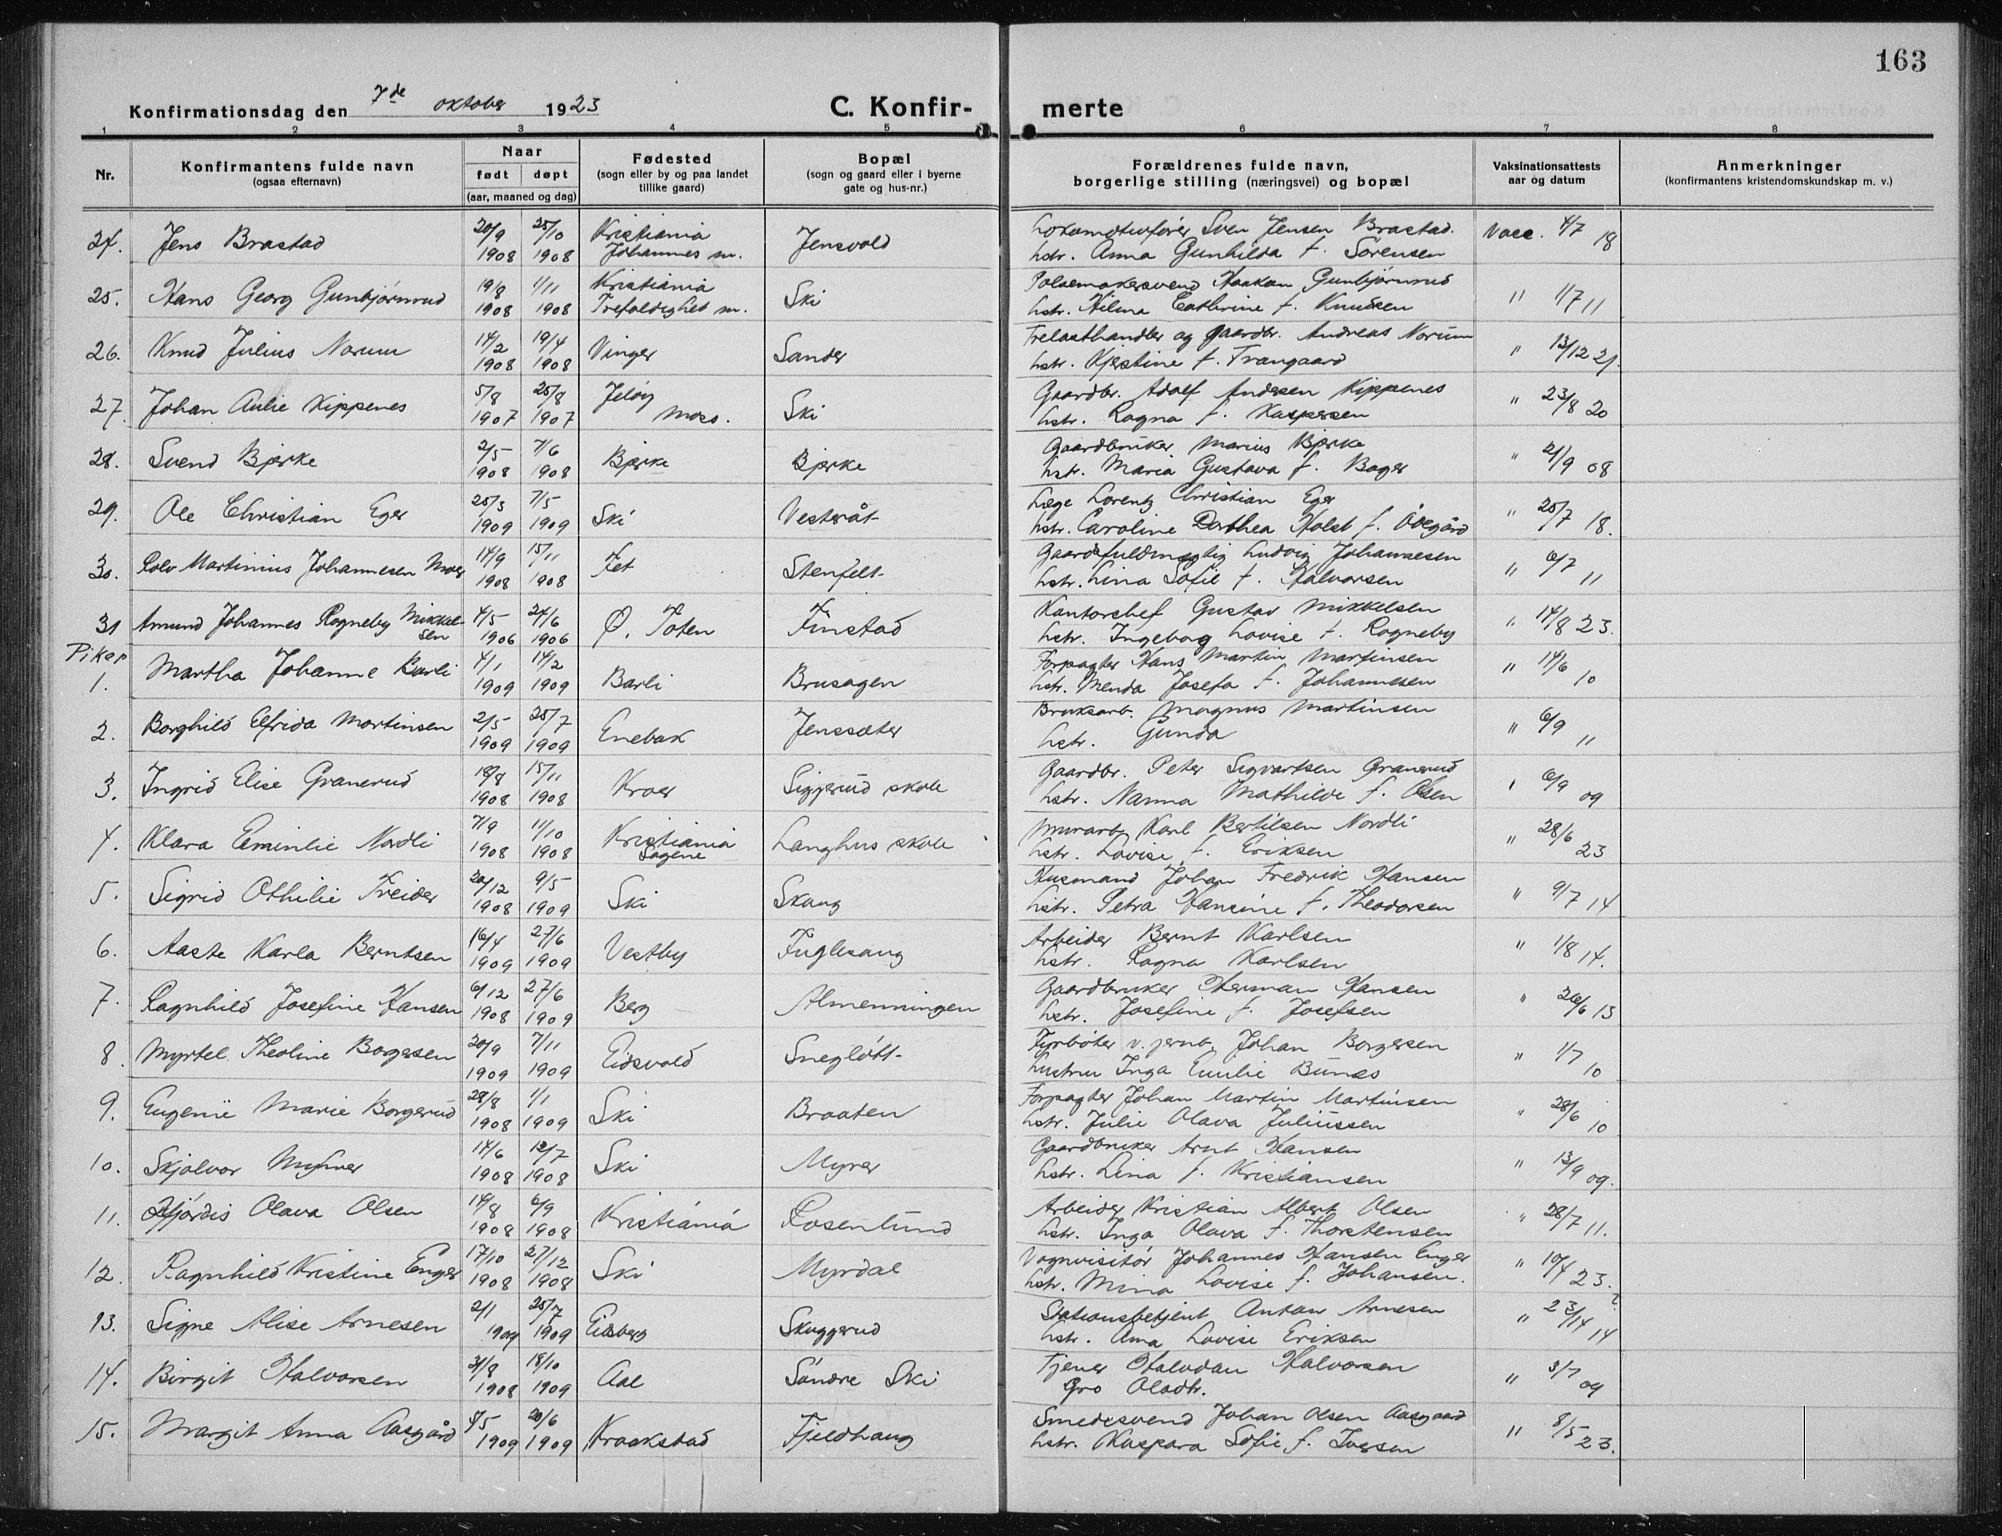 163
Konfirmationsdag den 7de oktober 1923
C. Konfir-
merte
1 2 3 4 5 6 7 8
Nr. | Konfirmantens fulde navn (ogsaa efternavn) | Naar født døpt (aar, maaned og dag) | Fødested (sogn eller by og paa landet tillike gaard) | Bopæl (sogn og gaard eller i byerne gate og hus-nr.) | Forældrenes fulde navn, borgerlige stilling (næringsvei) og bopæl | Vaksinationsattests aar og datum | Anmerkninger (konfirmantens kristendomskundskap m. v.)
24. Jens Brastad 20/9 1908 25/10 1908 Kristiania Johannes m. Jensvold Lokomotivfører Sven Jensen Brastad. hstr. Anna Gunhilda f. Sørensen Vacc. 4/7 18
25. Hans Georg Gunbjørnrud 19/8 1908 1/11 1908 Kristiania Trefoldighet m. Ski Polsemakersvend Haakon Gunbjørnrud hstr. Hilma Cathrine f. Knudsen " 1/7 11
26. Knud Julius Norum 14/2 1908 19/4 1908 Vinger Sander Trelasthandler og gaardbr. Andreas Norum hstr. Kjerstine f. Trangaard " 13/12 21.
27. Johan Aulie Kippenes 5/8 1907 25/8 1907 Jeløy Moss. Ski Gaardbr. Adolf Andersen Kippenes hstr. Ragna f. Kaspersen " 23/8 20
28. Svend Bjerke 2/5 1908 7/6 1908 Bjerke Bjerke Gaardbruker Marius Bjerke hstr. Maria Gustava f. Bager " 21/9 08
29. Ole Christian Eger 25/3 1909 7/5 1909 Ski Vesteråt Læge Lorentz Christian Eger hstr. Caroline Dorthea Holst f. Ødegård " 25/7 18.
30. Rolv Martinius Johannesen Moer 14/9 1908 15/11 1908 Fet Stenfelt Gaardsfuldmægtig Ludvig Johannesen hstr. Lina Sofie f. Halvorsen " 6/7 11
31 Amund Johannes Rogneby Mikkelsen 4/5 1906 24/6 1906 Ø. Toten Finstad Kontorchef Gustav Mikkelsen hstr. Ingeborg Lovise f. Rogneby " 14/8 23.
Piker
1. Martha Johanne Barli 4/1 1909 14/2 1909 Barli Brusagen Forpagter Hans Martin Martinsen hstr. Menda Josefa f. Johannesen " 14/6 10
2. Borghild Elfrida Martinsen 2/5 1909 25/7 1909 Enebak Jenssæter Bruksarb. Magnus Martinsen hstr. Gunda " 6/9 11
3. Ingrid Elise Granerud 18/8 1908 15/11 1908 Kroer Siggerud skole Gaardbr. Peter Sigvartsen Granerud hstr. Nanna Mathilde f. Olsen " 6/9 09
4. Klara Eminlie Nordli 7/9 1908 11/10 1908 Kristiania Sagene Langhus skole Murarb. Karl Bertilsen Nordli hstr. Lovise f. Eriksen " 28/6 23
5. Sigrid Othilie Treider 20/12 1908 9/5 1909 Ski Skaug Husmand Johan Fredrik Hansen hstr. Petra Hansine f. Theodorsen " 9/7 14
6. Aaste Karla Berntsen 16/4 1909 27/6 1909 Vestby Fuglesang Arbeider Bernt Karlsen hstr. Ragna Karlsen " 1/8 14.
7. Ragnhild Josefine Hansen 6/12 1908 27/6 1909 Berg Almenningen Gaardbruker Herman Hansen hstr. Josefine f. Josefsen " 26/6 13
8. Myrtel Theoline Borgersen 20/9 1909 7/11 1909 Eidsvold Snegløtt Fyrbøter v. jernb. Johan Borgersen hustru Inga Emilie Bunæs " 1/7 10
9. Eugenie Marie Borgerud 28/8 1908 1/1 1909 Ski Braaten Forpagter Johan Martin Martinsen hstr. Julie Olava Juliussen " 28/6 10
10. Skjalvor Myhrer 14/6 1908 12/7 1908 Ski Myrer Gaardbruker Arnt Hansen hstr. Lina f. Kristiansen " 13/9 09.
11. Hjørdis Olava Olsen 14/8 1908 6/9 1908 Kristiania Rosenlund Arbeider Kristian Albert Olsen hstr. Inga Olava f. Thorstensen " 28/7 11.
12. Ragnhild Kristine Enger 17/10 1908 27/12 1908 Ski Myrdal Vognvisitør Johannes Hansen Enger hstr. Mina Lovise f. Johansen. " 10/4 23.
13. Signe Alise Arnesen 2/1 1909 25/7 1909 Eidsberg Skuggerud Stationsbetjent Anton Arnesen hstr. Ama Lovise Eriksen " 23/14 14 ?
14. Birgit Halvorsen 31/8 1908 18/10 1909 Aal Søndre Ski Tjener Halvdan Halvorsen Gro Oladtr. " 3/7 09
15. Margit Anna Aasgård 4/5 1909 20/6 1909 Kraakstad Fjeldhaug Smedesvend Johan Olsen Aasgaard hstr. Kaspara Sofie f. Iversen " 8/5 23.